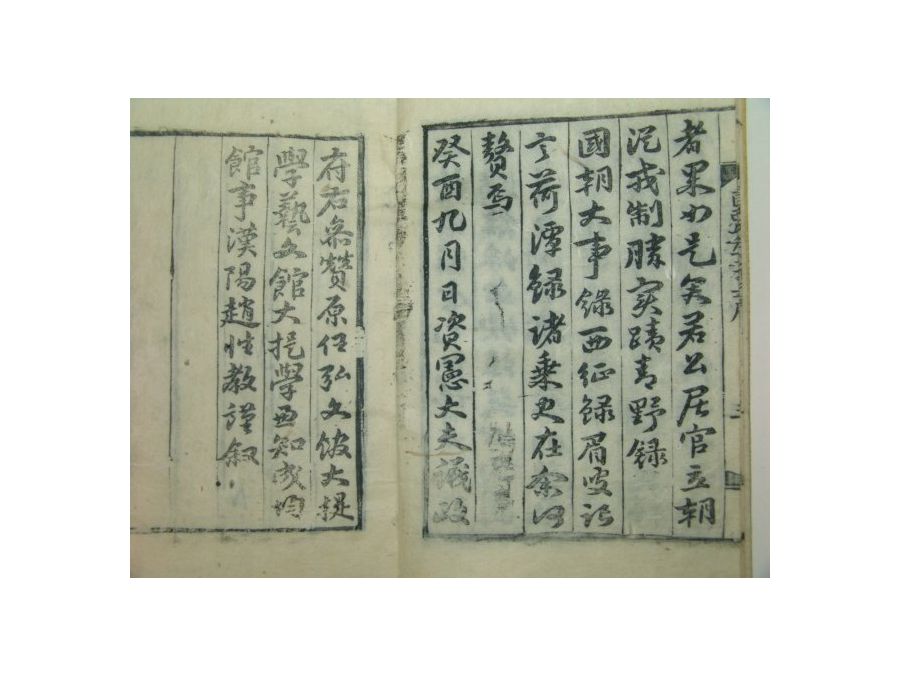 者果如是矣若公居官立朝
況戎制勝實蹟青野錄
國朝大事錄西征錄眉叟記
言荷潭錄諸乘史在余何
贅焉
癸酉九月日資憲大夫議政
府右參贊原任弘文館大提
學藝文館大提學兼知成均
館事漢陽趙性教謹叙